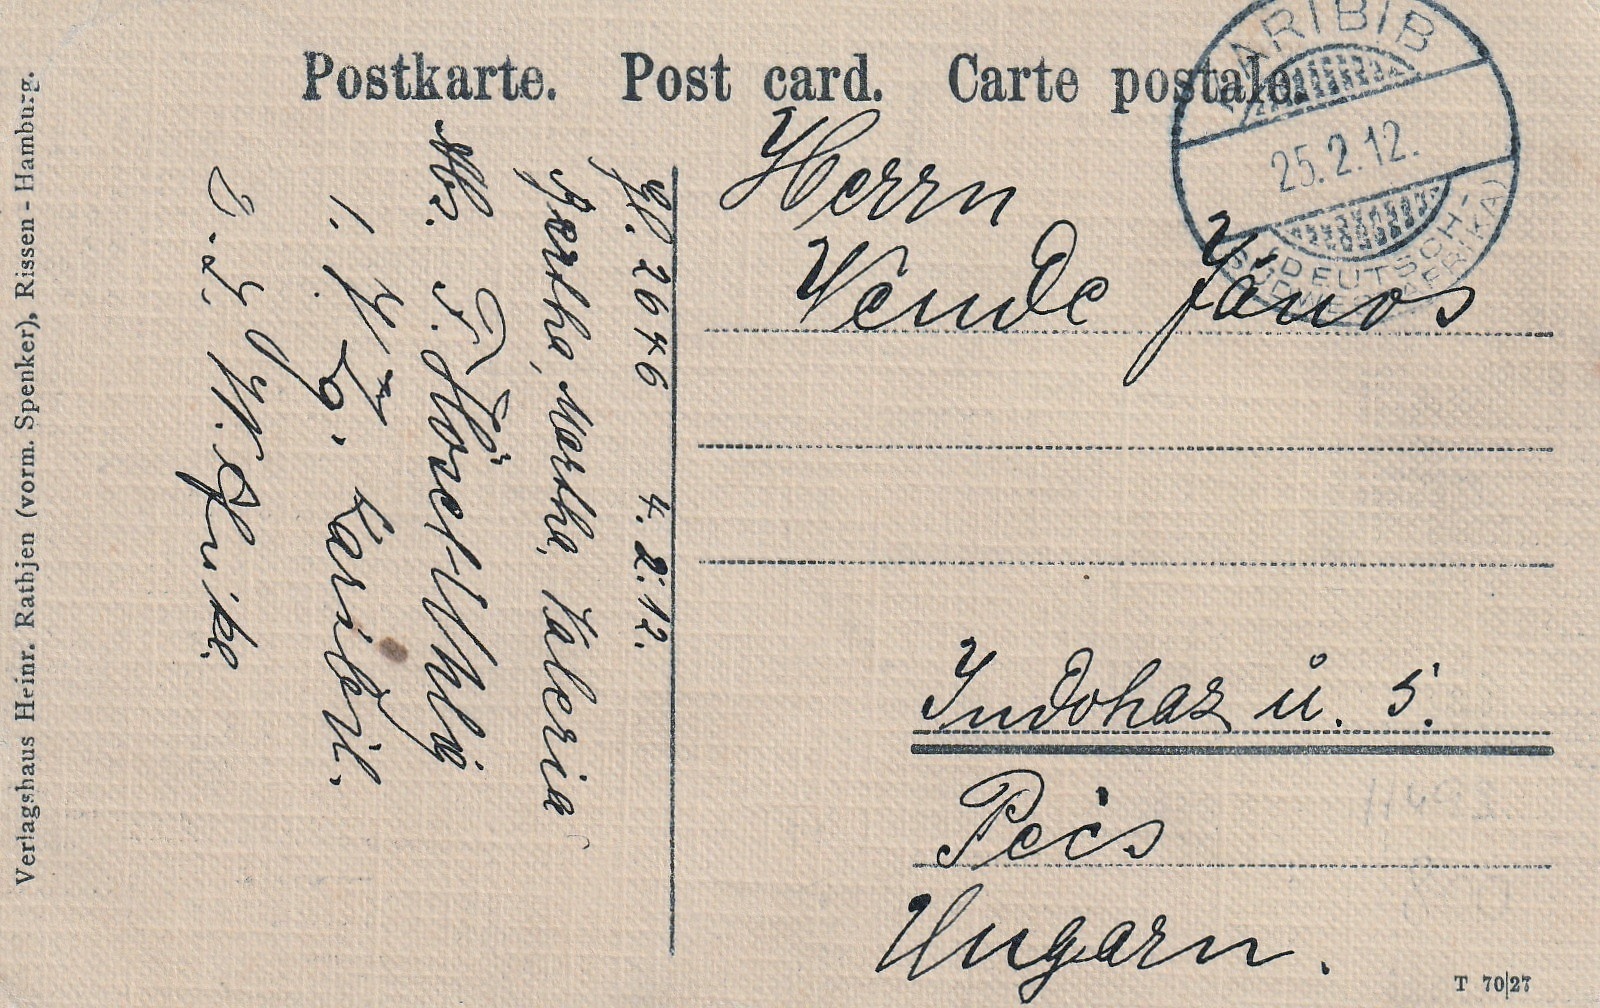 Postkarte. Post card. Carte postale.
KARIBIB
25.2.12.
(DEUTSCH-
SÜDWESTAFRIKA)
Herrn
Vende János
Indohaz u. 5.
Pécs
Ungarn.
2646 4.2.12.
Bertha, Martha, Valeria
Abs. F.
1. Karibib.
D. S. W. Afrika.
Verlagshaus Heinr. Rathjen (vorm. Spenker), Rissen - Hamburg.
T 70|27